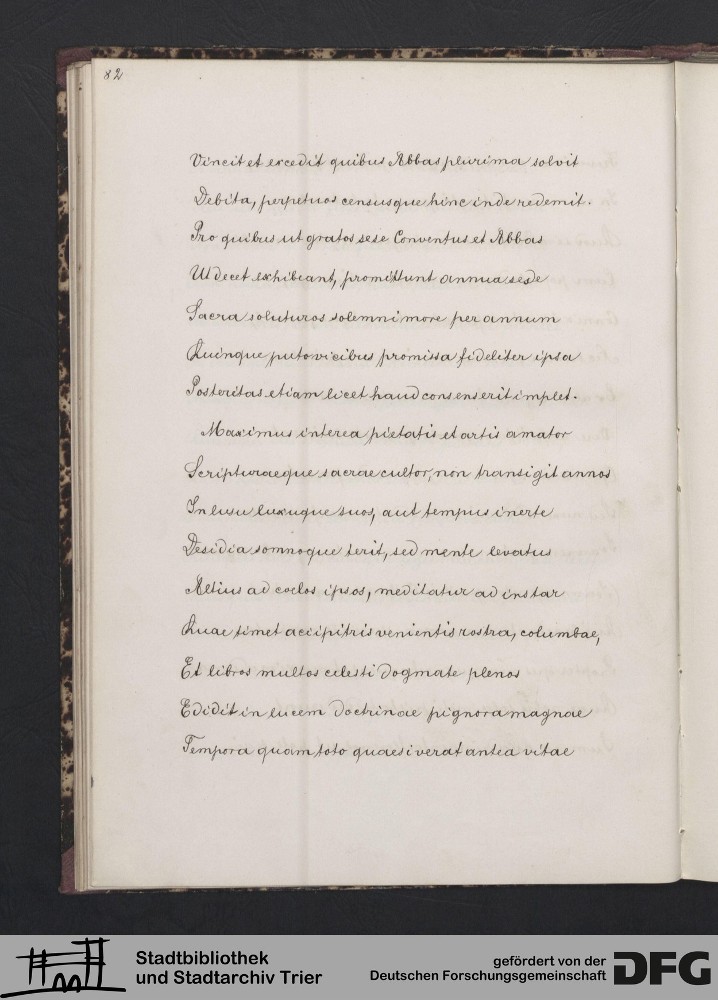 82
Vincit et excedit quibus Abbas plurima solvit
Debita, perpetuos censusque hinc inde redemit.
Pro quibus ut gratos sese Conventus et Abbas
Ut decet exhibeant, promittunt annua sese
Sacra soluturos solemni more per annum
Quinque puto vicibus promissa fideliter ipsa
Posteritas etiam licet haud consenserit implet.
Maximus interea pietatis et artis amator
Scripturaeque sacrae cultor, non transigit annos
In lusu luxuque suos, aut tempus inerte
Desidia somnoque terit, sed mente levatus
Altius ad coelos ipsos, meditatur ad instar
Quae timet accipitris venientis rostra, columbae,
Et libros multos celesti dogmate plenos
Edidit in lucem doctrinae pignora magnae
Tempora quam toto quaesiverat antea vitae
Stadtbibliothek
und Stadtarchiv Trier
gefördert von der
Deutschen Forschungsgemeinschaft
DFG